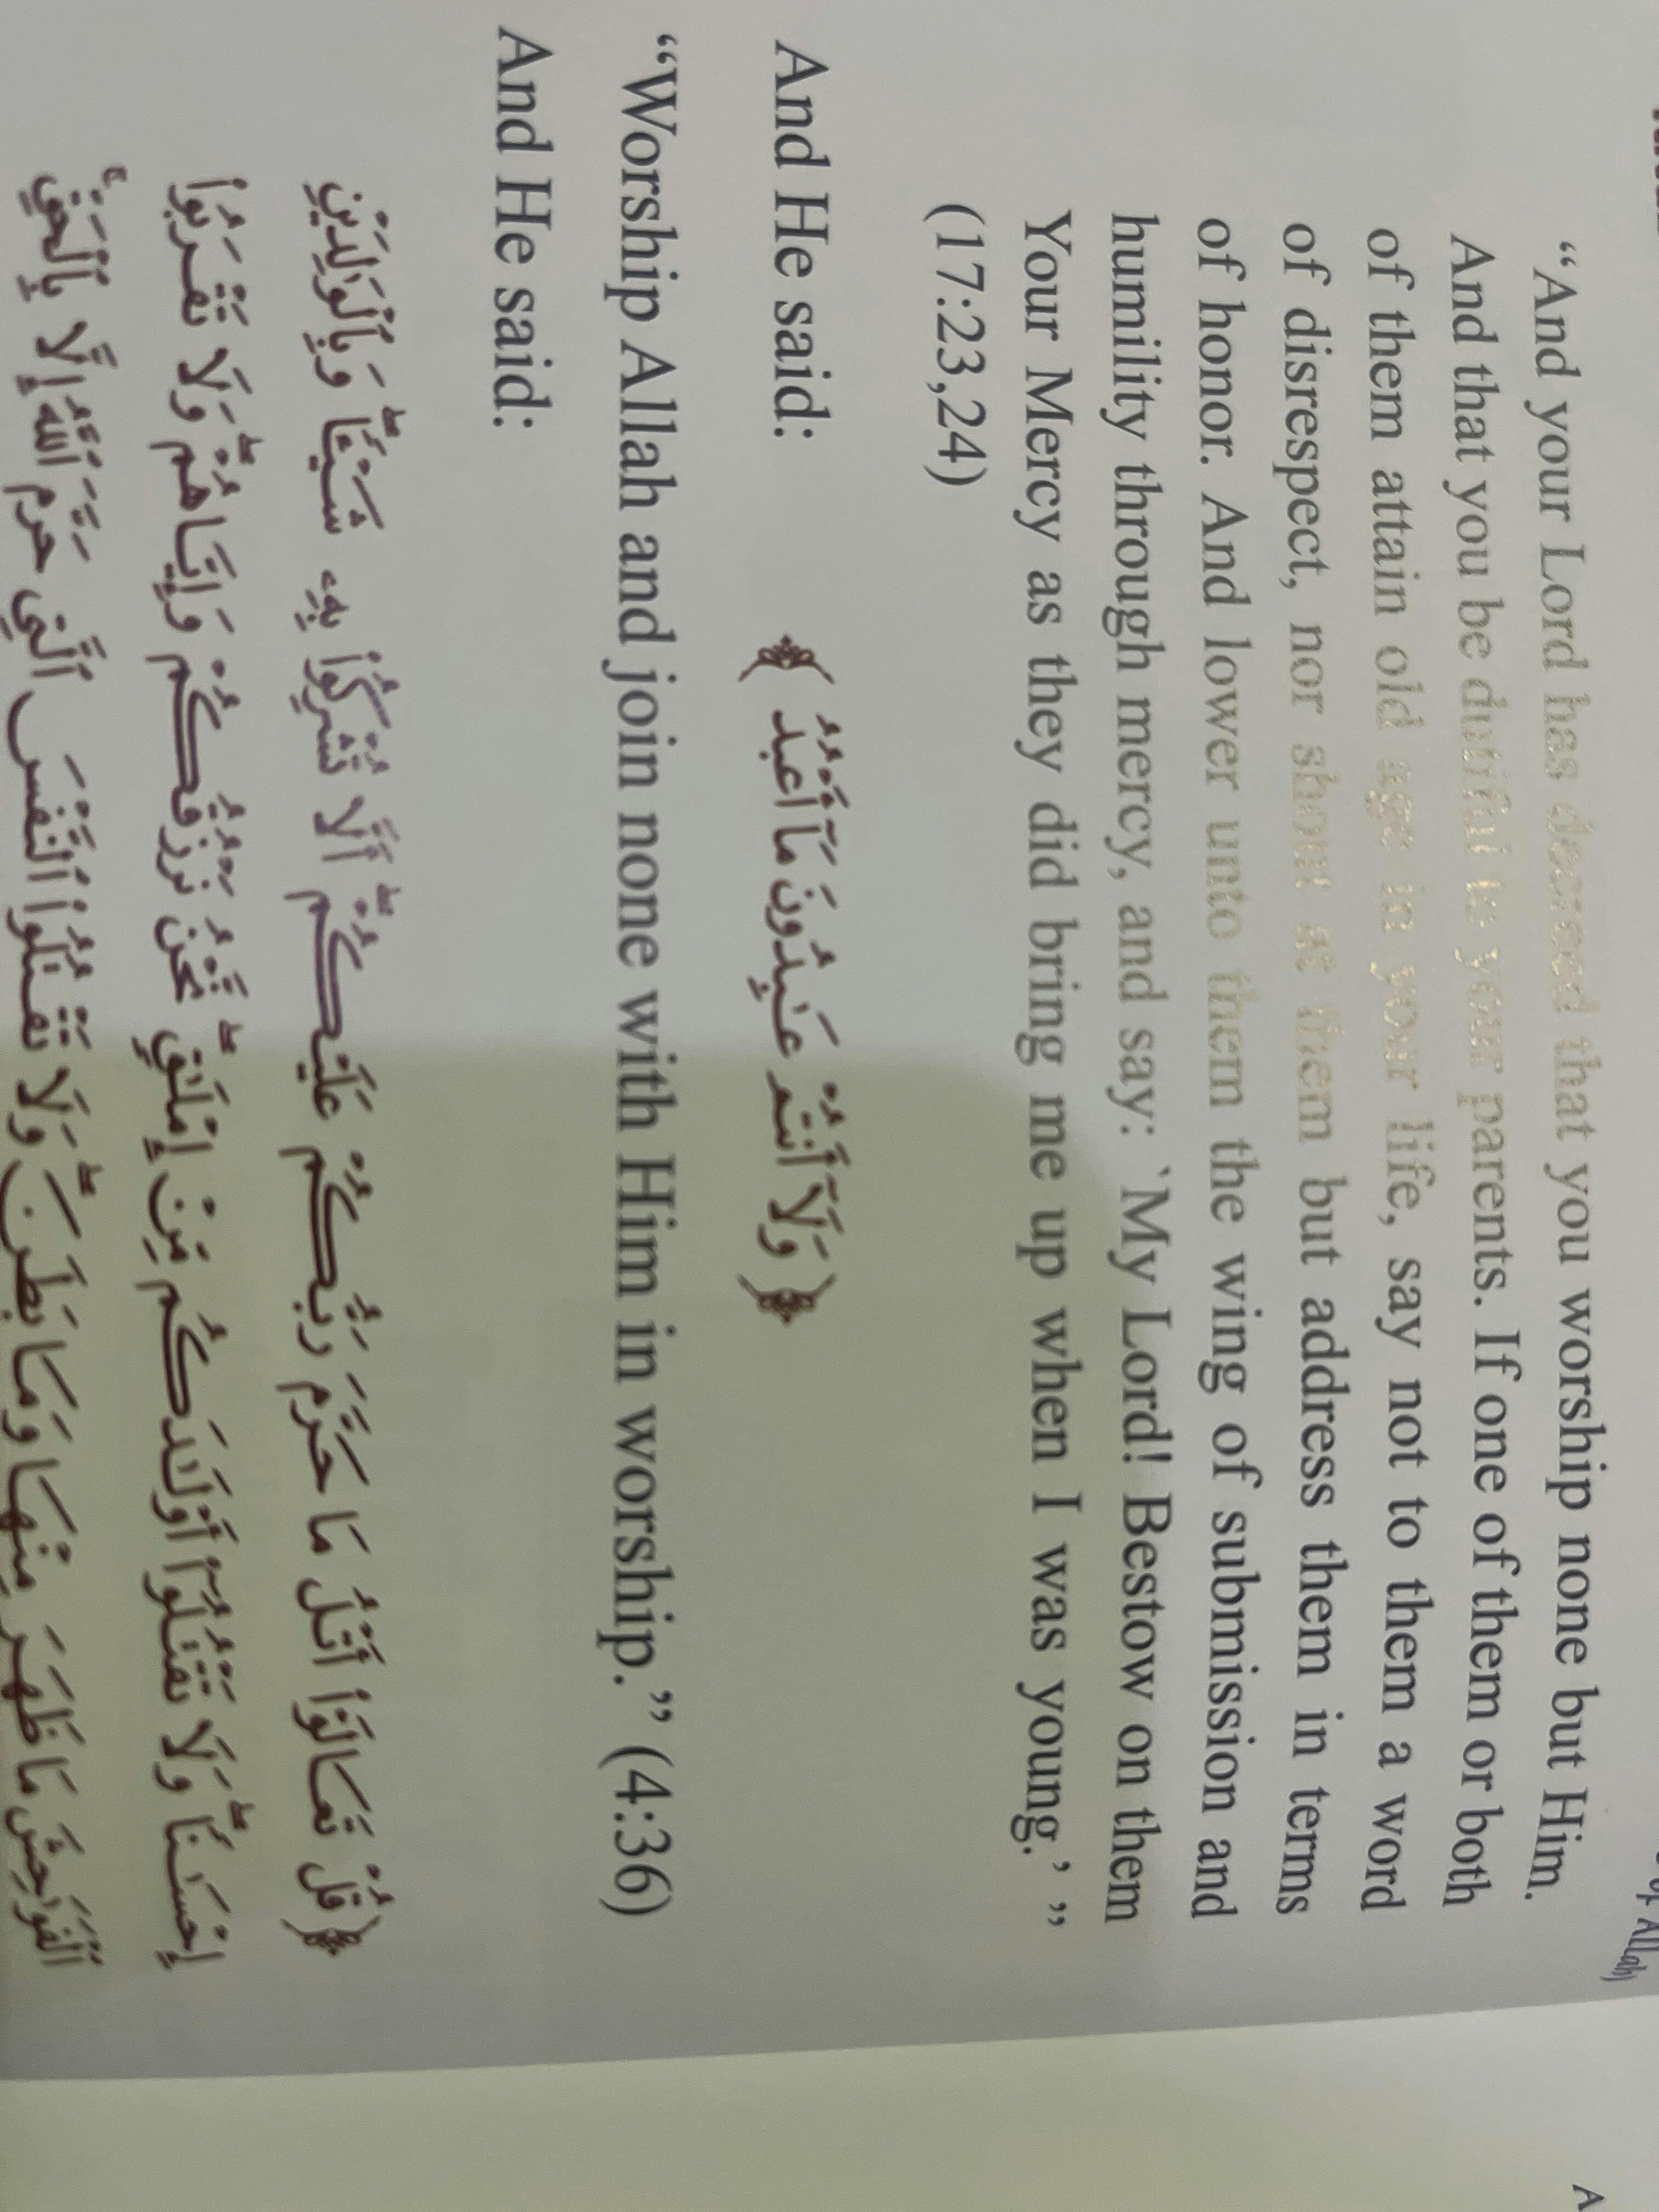 of Allah)
“And your Lord has decreed that you worship none but Him.
And that you be dutiful to your parents. If one of them or both
of them attain old age in your life, say not to them a word
of disrespect, nor shout at them but address them in terms
of honor. And lower unto them the wing of submission and
humility through mercy, and say: `My Lord! Bestow on them
Your Mercy as they did bring me up when I was young.’ ”
(17:23,24)
And He said:
﴿ وَلَآ أَنتُمْ عَـٰبِدُونَ مَآ أَعْبُدُ ﴾
“Worship Allah and join none with Him in worship.” (4:36)
And He said:
﴿ قُلْ تَعَالَوْا۟ أَتْلُ مَا حَرَّمَ رَبُّكُمْ عَلَيْكُمْ ۖ أَلَّا تُشْرِكُوا۟ بِهِۦ شَيْـًٔا ۖ وَبِٱلْوَٰلِدَيْنِ
إِحْسَـٰنًا ۖ وَلَا تَقْتُلُوٓا۟ أَوْلَـٰدَكُم مِّنْ إِمْلَـٰقٍ ۖ نَّحْنُ نَرْزُقُكُمْ وَإِيَّاهُمْ ۖ وَلَا تَقْرَبُوا۟
ٱلْفَوَٰحِشَ مَا ظَهَرَ مِنْهَا وَمَا بَطَنَ ۖ وَلَا تَقْتُلُوا۟ ٱلنَّفْسَ ٱلَّتِى حَرَّمَ ٱللَّهُ إِلَّا بِٱلْحَقِّ ۚ
A